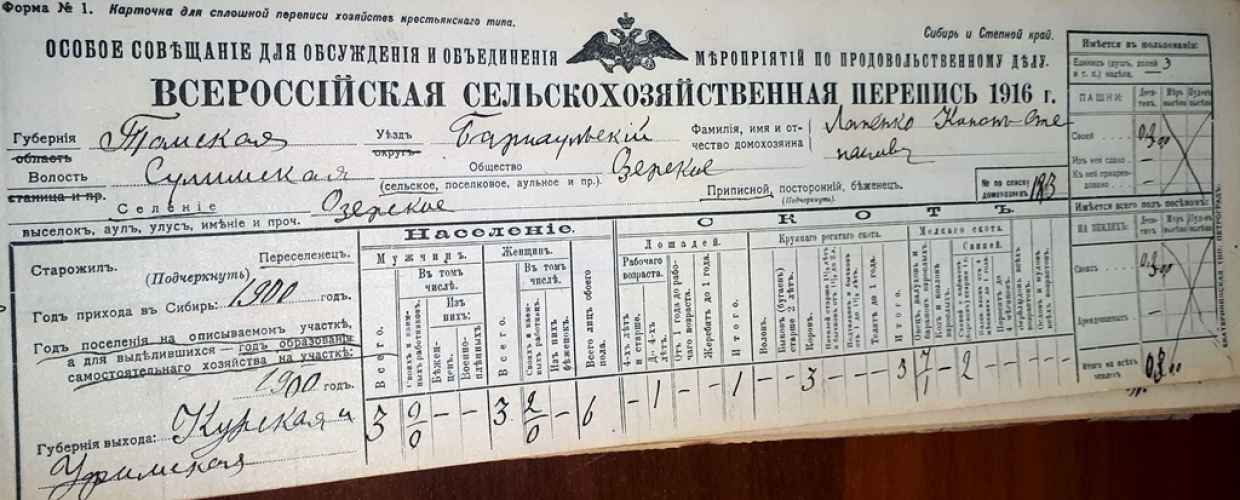 Форма № 1. Карточка для сплошной переписи хозяйств крестьянского типа.
Сибирь и Степной край.
ОСОБОЕ СОВѢЩАНІЕ ДЛЯ ОБСУЖДЕНІЯ И ОБЪЕДИНЕНІЯ МѢРОПРІЯТІЙ ПО ПРОДОВОЛЬСТВЕННОМУ ДѢЛУ.
ВСЕРОССІЙСКАЯ СЕЛЬСКОХОЗЯЙСТВЕННАЯ ПЕРЕПИСЬ 1916 г.
Губернія Томская Уѣздъ Барнаульскій Фамилія, имя и от-
область округъ чество домохозяина
Волость Сулимская Общество Озерское
станица и пр. (сельское, поселковое, аульное и пр.).
Приписной, посторонній, бѣженецъ. (Подчеркнуть).
№ по списку домохозяевъ
Селеніе Озерское
выселокъ, аулъ, улусъ, имѣніе и проч.
Старожилъ. Переселенецъ.
(Подчеркнуть)
Годъ прихода въ Сибирь: 1900 годъ.
Годъ поселенія на описываемомъ участкѣ,
а для выдѣлившихся — годъ образованія
самостоятельнаго хозяйства на участкѣ:
1900 годъ.
Губернія выхода: Курская и
Уфимская
Населеніе.
Мужчинъ. Женщинъ.
Въ томъ числѣ. Въ томъ числѣ.
Изъ нихъ:
Всего.
Своихъ и наемныхъ работниковъ.
Бѣженцевъ.
Военноплѣнныхъ
Всего.
Изъ нихъ бѣженокъ.
Всего лицъ обоего пола.
3 2/0 — — 3 2/0 — 6
СКОТЪ.
Лошадей. Крупнаго рогатаго скота. Мелкаго скота.
Рабочаго возраста.
4-хъ лѣтъ и старше.
До 4-хъ лѣтъ.
Отъ 1 года до рабочаго возраста.
Жеребятъ до 1 года.
Итого.
Воловъ.
Быковъ (бугаевъ) старше 2 лѣтъ.
Коровъ.
Телятъ до 1 года.
Итого.
Свиней.
— 1 — — 1 — — 3 — — — 3 7/1 — 2 — — — —
Имѣется въ пользованіи:
Единицъ (душъ, долей и т. п.) надѣла. 3
ПАШНИ:
Своей
Изъ нея сдано
Къ ней приарендовано
Имѣется всего подъ посѣвомъ:
НА ЗЕМЛЯХЪ:
Своихъ
Арендованныхъ
Итого на всѣхъ земляхъ